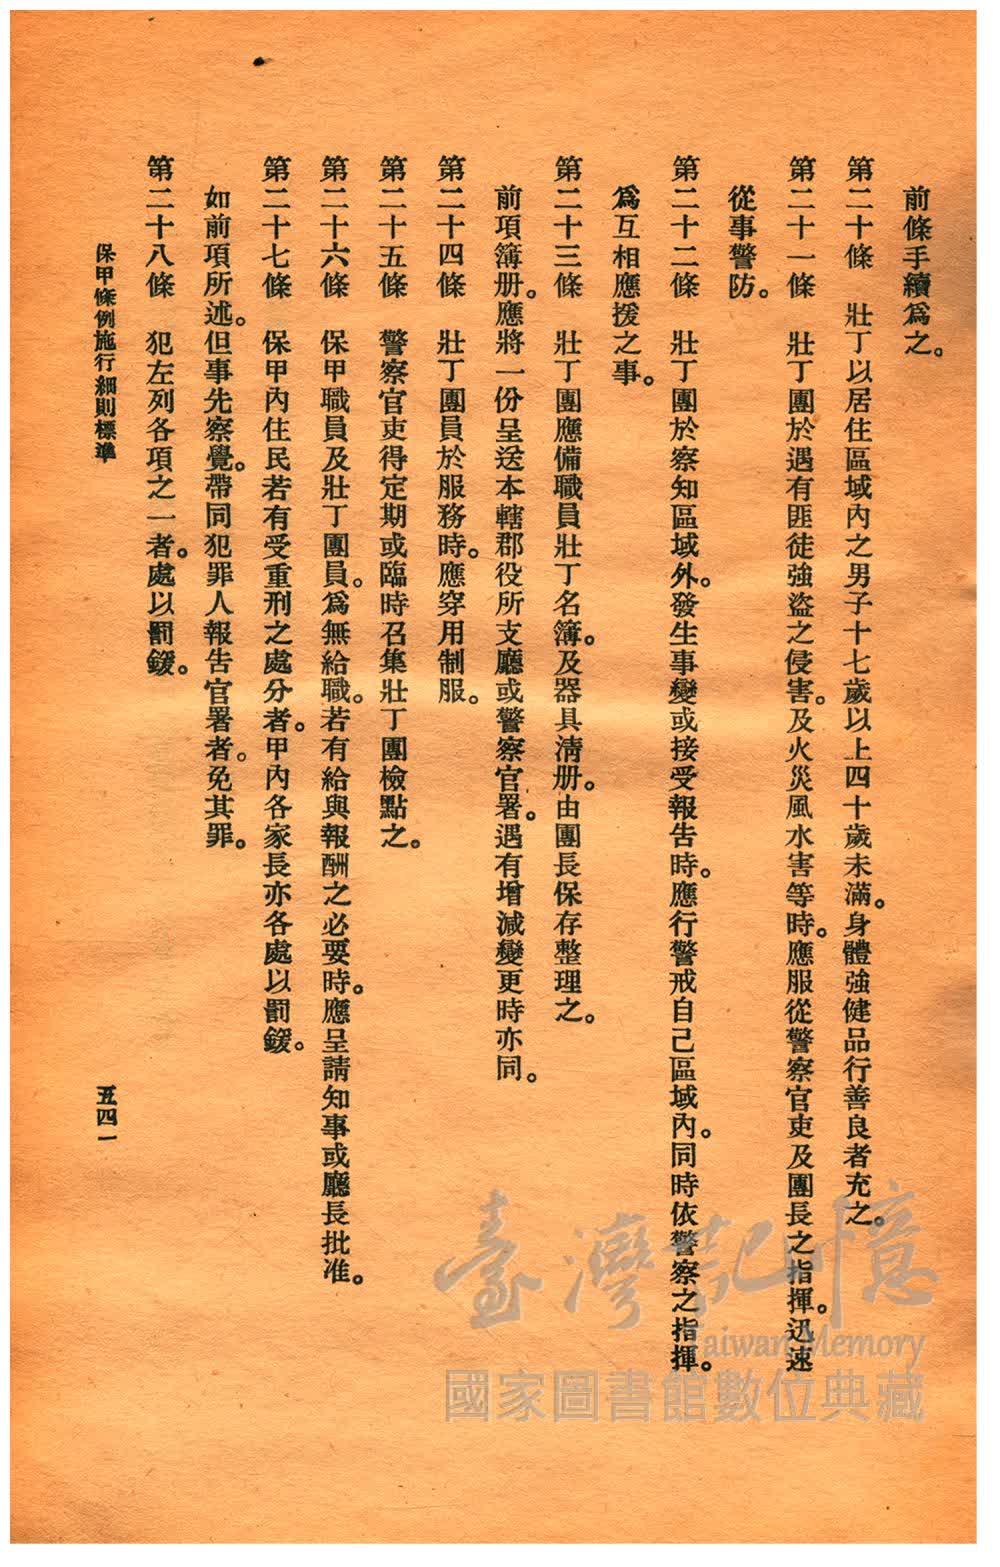 前條手續爲之。
第二十條　壯丁以居住區域內之男子十七歲以上四十歲未滿。身體強健品行善良者充之。
第二十一條　壯丁團於遇有匪徒強盜之侵害。及火災風水害等時。應服從警察官吏及團長之指揮。迅速
從事警防。
第二十二條　壯丁團於察知區域外。發生事變或接受報告時。應行警戒自己區域內。同時依警察之指揮。
爲互相應援之事。
第二十三條　壯丁團應備職員壯丁名簿。及器具淸册。由團長保存整理之。
前項簿册。應將一份呈送本轄郡役所支廳或警察官署。遇有增減變更時亦同。
第二十四條　壯丁團員於服務時。應穿用制服。
第二十五條　警察官吏得定期或臨時召集壯丁團檢點之。
第二十六條　保甲職員及壯丁團員。爲無給職。若有給與報酬之必要時。應呈請知事或廳長批准。
第二十七條　保甲內住民若有受重刑之處分者。甲內各家長亦各處以罰鍰。
如前項所述。但事先察覺。帶同犯罪人報告官署者。免其罪。
第二十八條　犯左列各項之一者。處以罰鍰。
保甲條例施行細則標準
五四一
臺灣記憶
Taiwan Memory
國家圖書館數位典藏